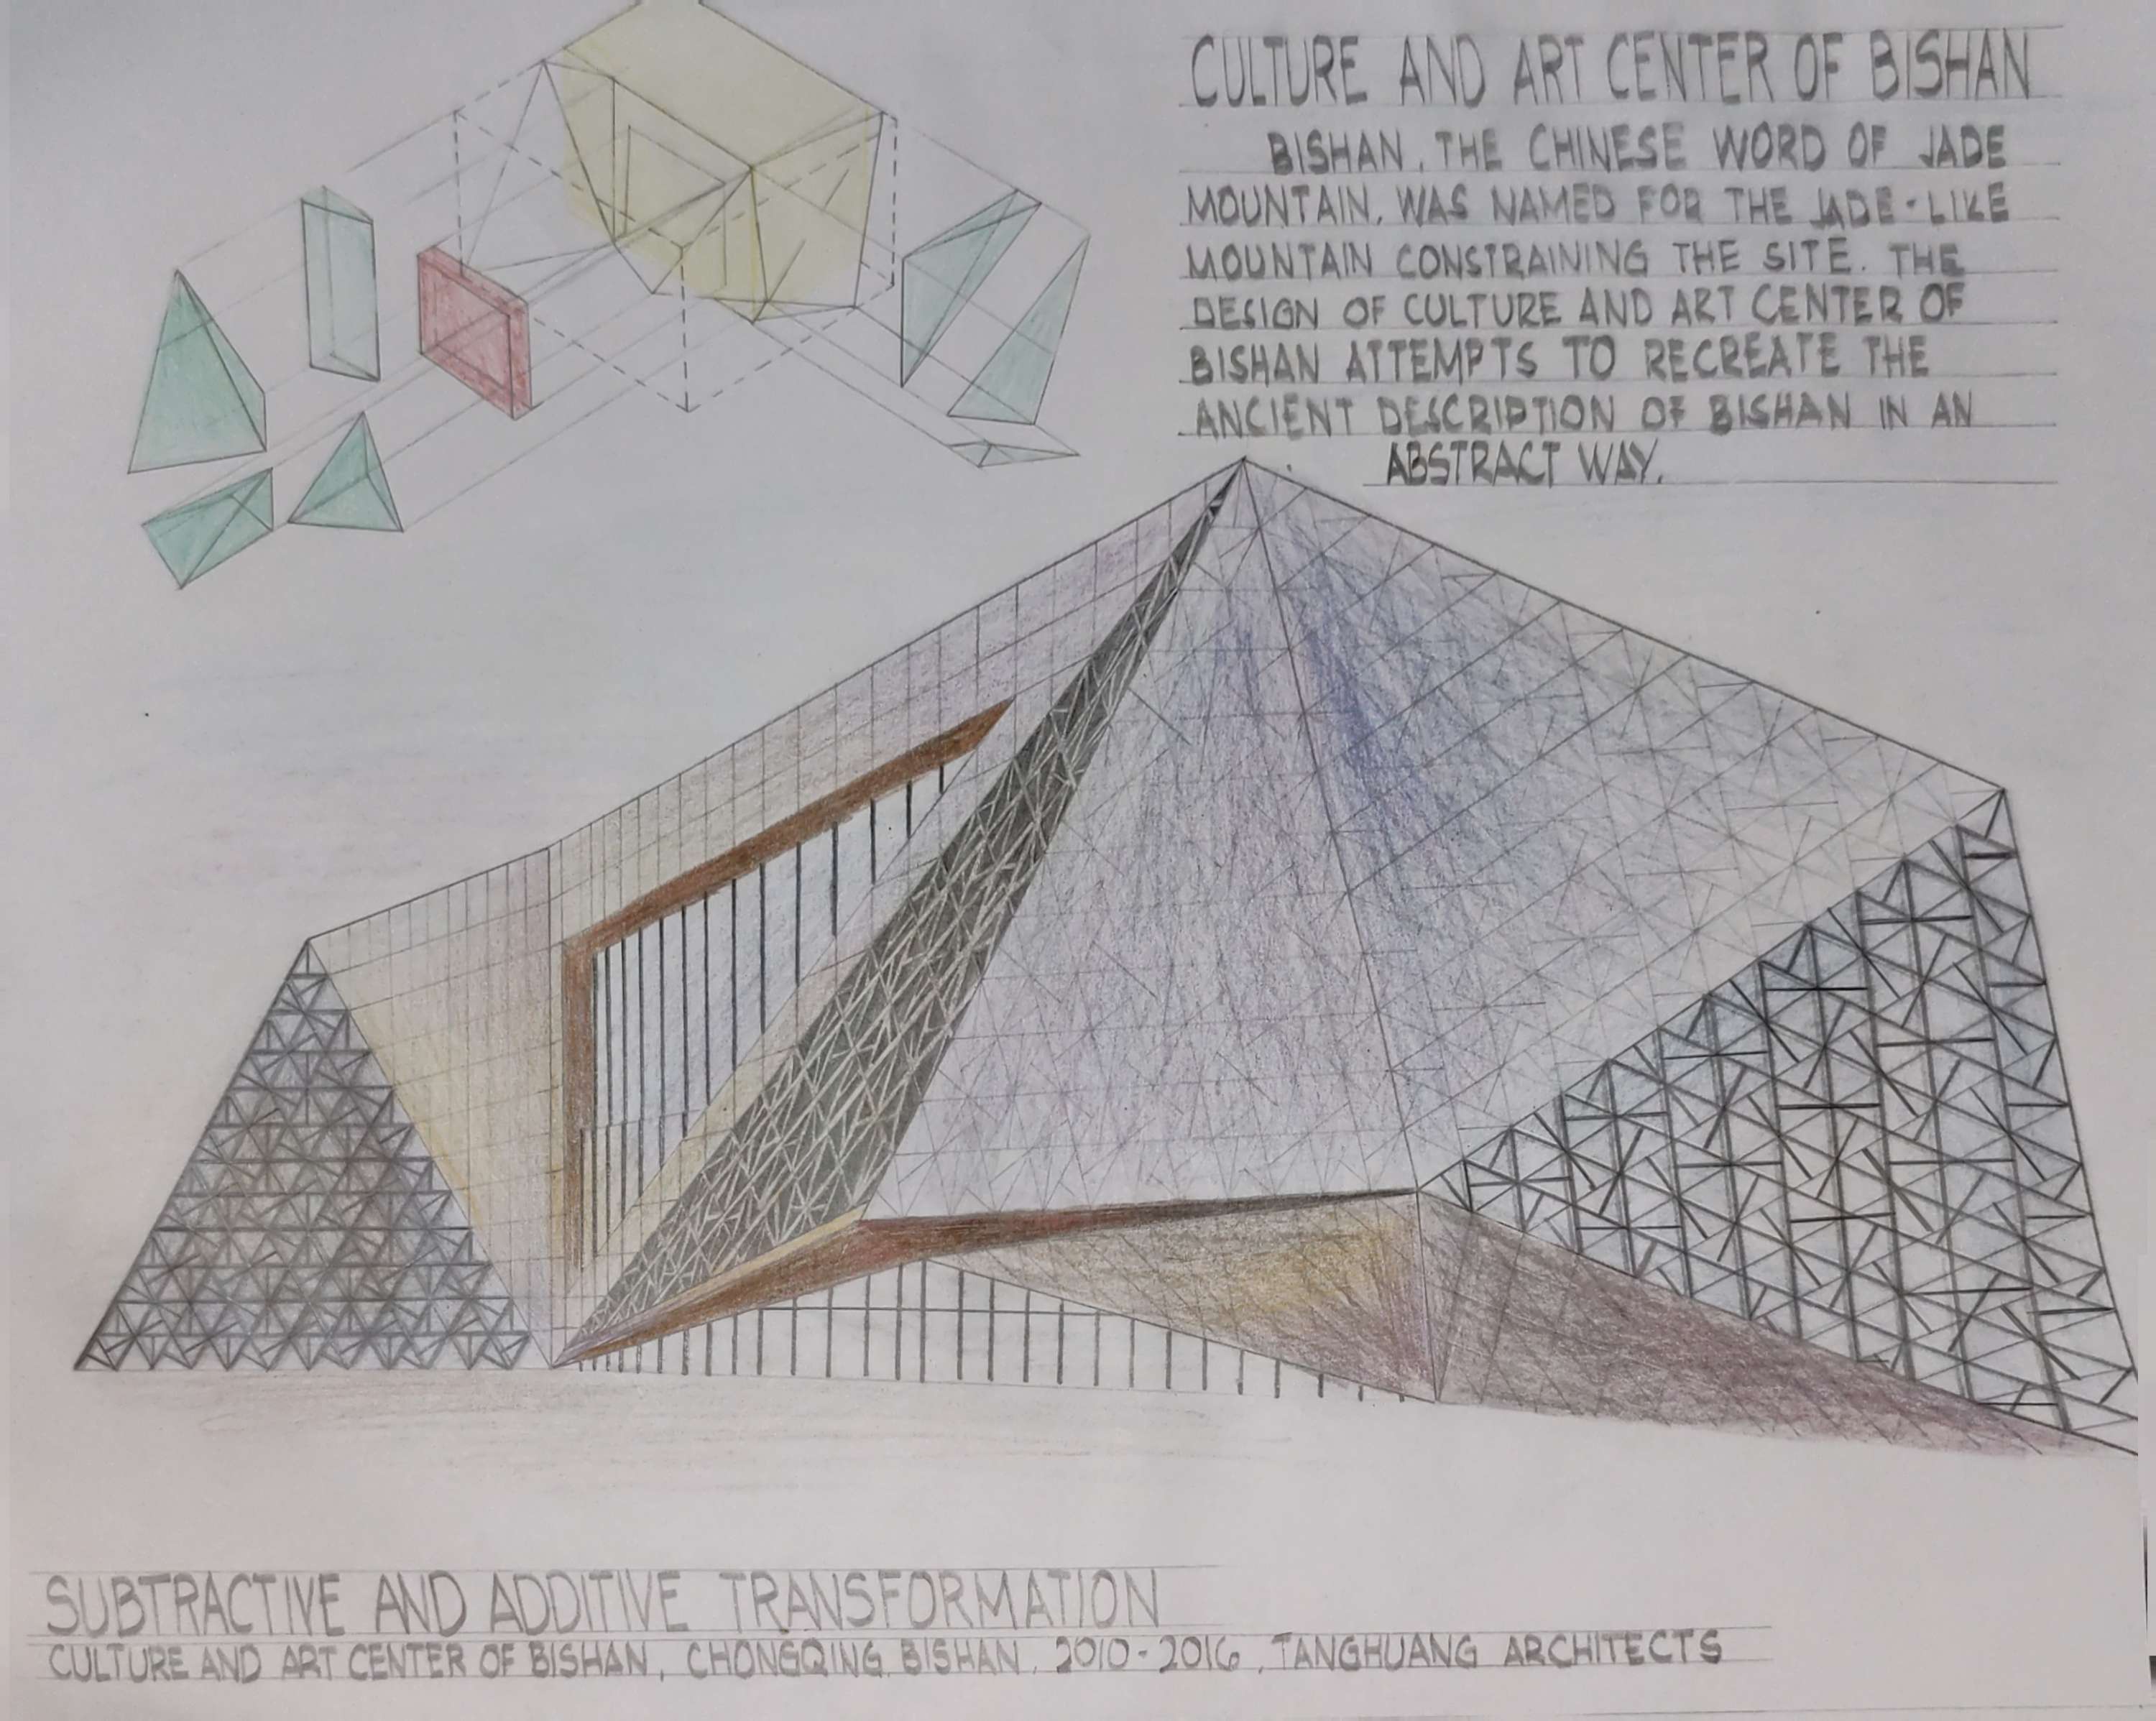 CULTURE AND ART CENTER OF BISHAN
BISHAN, THE CHINESE WORD OF JADE
MOUNTAIN, WAS NAMED FOR THE JADE-LIKE
MOUNTAIN CONSTRAINING THE SITE. THE
DESIGN OF CULTURE AND ART CENTER OF
BISHAN ATTEMPTS TO RECREATE THE
ANCIENT DESCRIPTION OF BISHAN IN AN
ABSTRACT WAY.
SUBTRACTIVE AND ADDITIVE TRANSFORMATION
CULTURE AND ART CENTER OF BISHAN, CHONGQING, BISHAN, 2010-2016, TANGHUANG ARCHITECTS